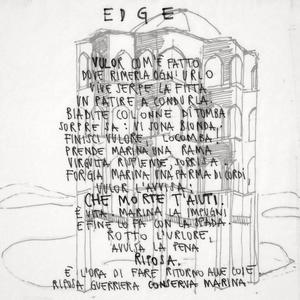 EDGE
VULOR COM'È FATTO
DOVE RIMERLA OGNI URLO
VIVE SERPE LA FITTA
UN PATIRE A CONDURLA.
BIADITE COLONNE DI TOMBA
SORPRESA: VI SONA BIONDA,
FINISCI VULORE LOCOMBA.
PRENDE MARINA UNA RAMA
VIRGULTA RISPLENTE, SORRISA.
FORGIA MARINA UNA PARMA DI CORDI
VULOR L'AVVISA:
CHE MORTE T'AIUTI.
È VITA MARINA LA IMPUGNI
E FINE LO FA CON LA SPADA
ROTTO L'URLORE,
AVULSA LA PENA
RIPOSA.
E L'ORA DI FARE RITORNO ALLE COSE
RIPOSA GUERRIERA CONSERVA MARINA